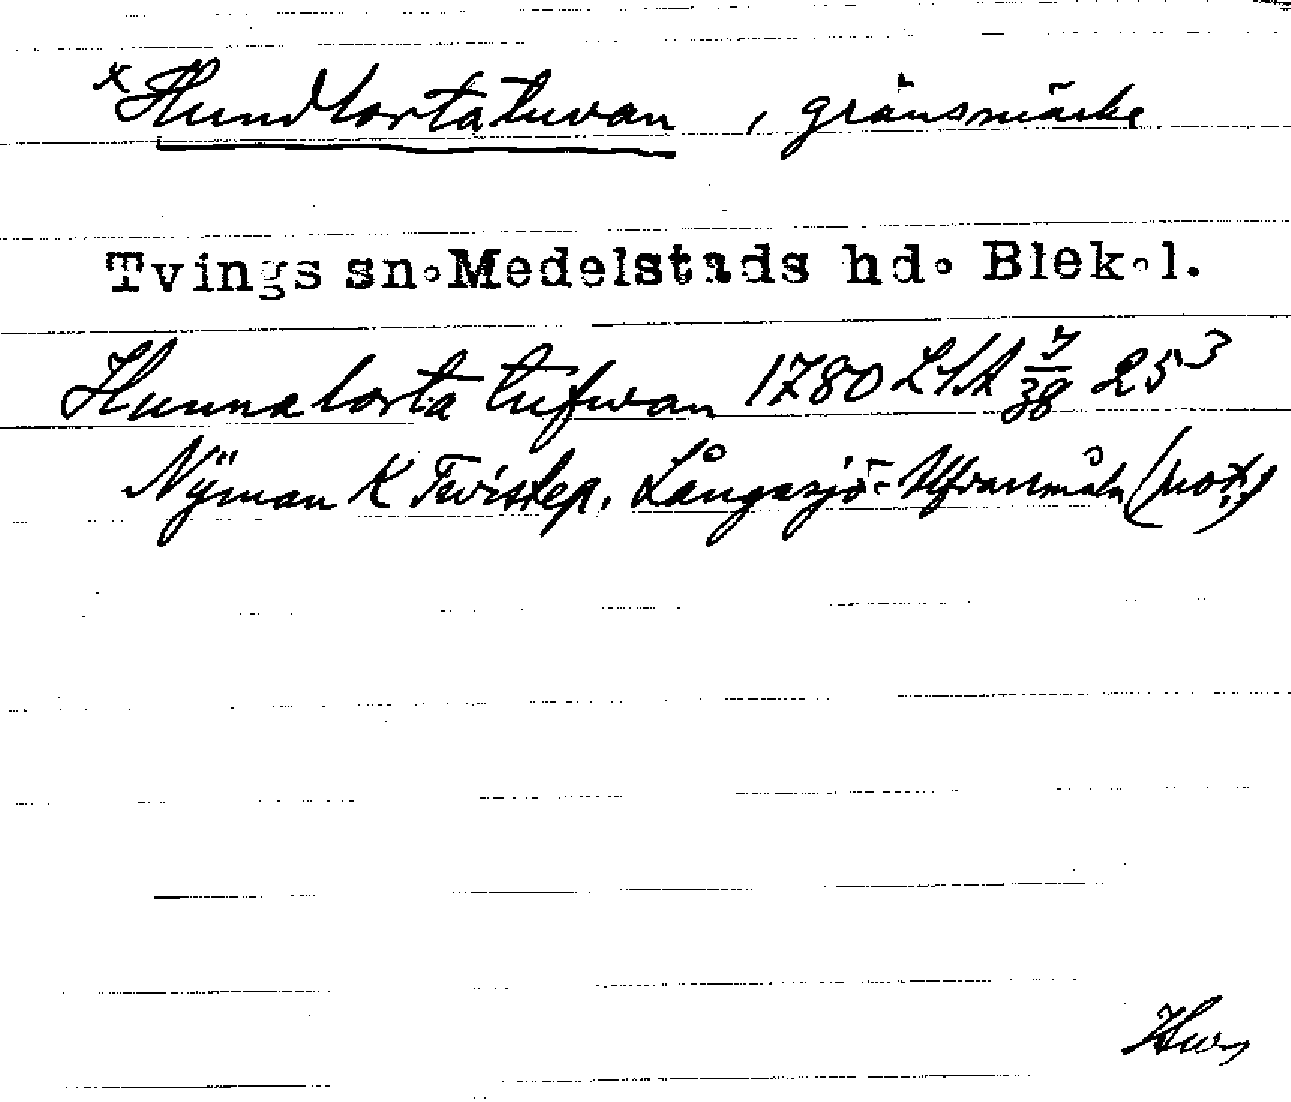 x Hundlortatuvan, gränsmärke
Tvings sn. Medelstads hd. Blek. l.
Hunnalorta tufwan 1780 LSA 7/38 25³
Nÿman K Twistep. Långasjö- Ulfvansmåla (not.)